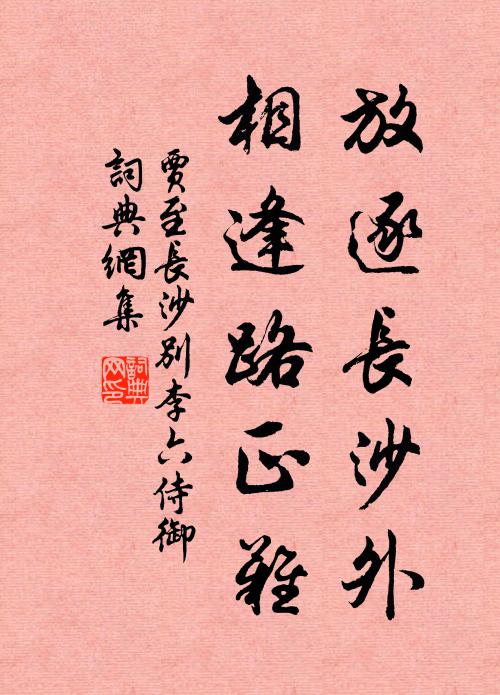 放逐長沙外
相逢路正難
賈至長沙別李六侍御
詞典網集
詞典网印